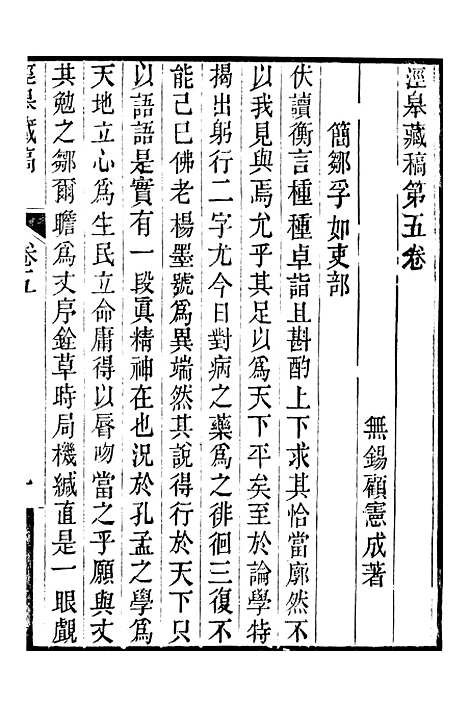 涇臯藏稿第五卷
無錫顧憲成著
簡鄒孚如吏部
伏讀衡言種種卓詣且斟酌上下求其恰當廓然不
以我見與焉允乎其足以爲天下平矣至於論學特
揭出躬行二字尤今日對病之藥爲之徘徊三復不
能已巳佛老楊墨號爲異端然其說得行於天下只
以語語是實有一段眞精神在也況於孔孟之學爲
天地立心爲生民立命庸得以脣吻當之乎願與丈
其勉之鄒爾瞻爲丈序銓草時局機緘直是一眼覷
涇臯藏稿
卷五